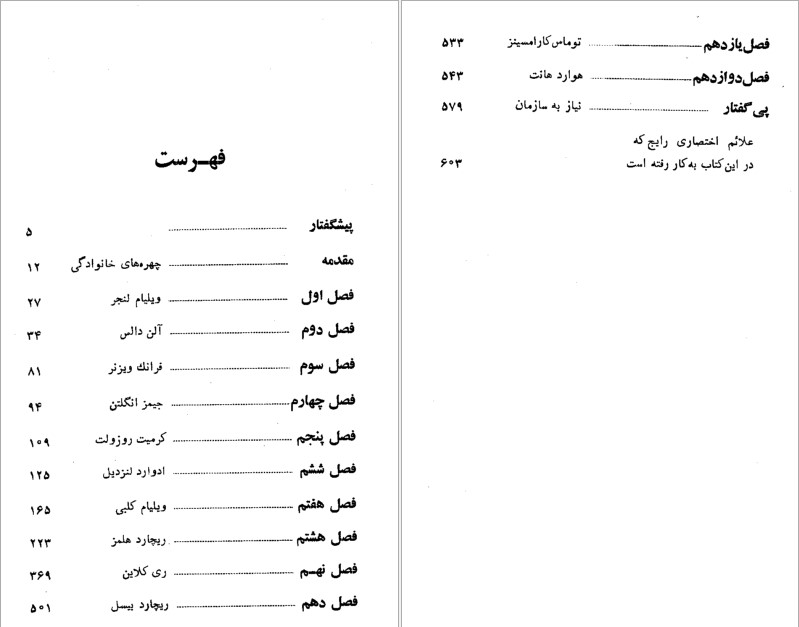 فهـرست
پیشگفتار ۵
مقدمه چهره‌های خانوادگی ۱۲
فصل اول ویلیام لنجر ۲۷
فصل دوم آلن دالس ۳۴
فصل سوم فرانك ویزنر ۸۱
فصل چهارم جیمز انگلتن ۹۴
فصل پنجم کرمیت روزولت ۱۰۹
فصل ششم ادوارد لنزدیل ۱۲۵
فصل هفتم ویلیام کلبی ۱۶۵
فصل هشتم ریچارد هلمز ۲۲۳
فصل نهـم ری کلاین ۳۶۹
فصل دهم ریچارد بیسل ۵۰۱
فصل یازدهم توماس کارامسینز ۵۳۳
فصل دوازدهم هوارد هانت ۵۴۳
پی گفتار نیاز به سازمان ۵۷۹
علائم اختصاری رایج که
در این کتاب به کار رفته است ۶۰۳